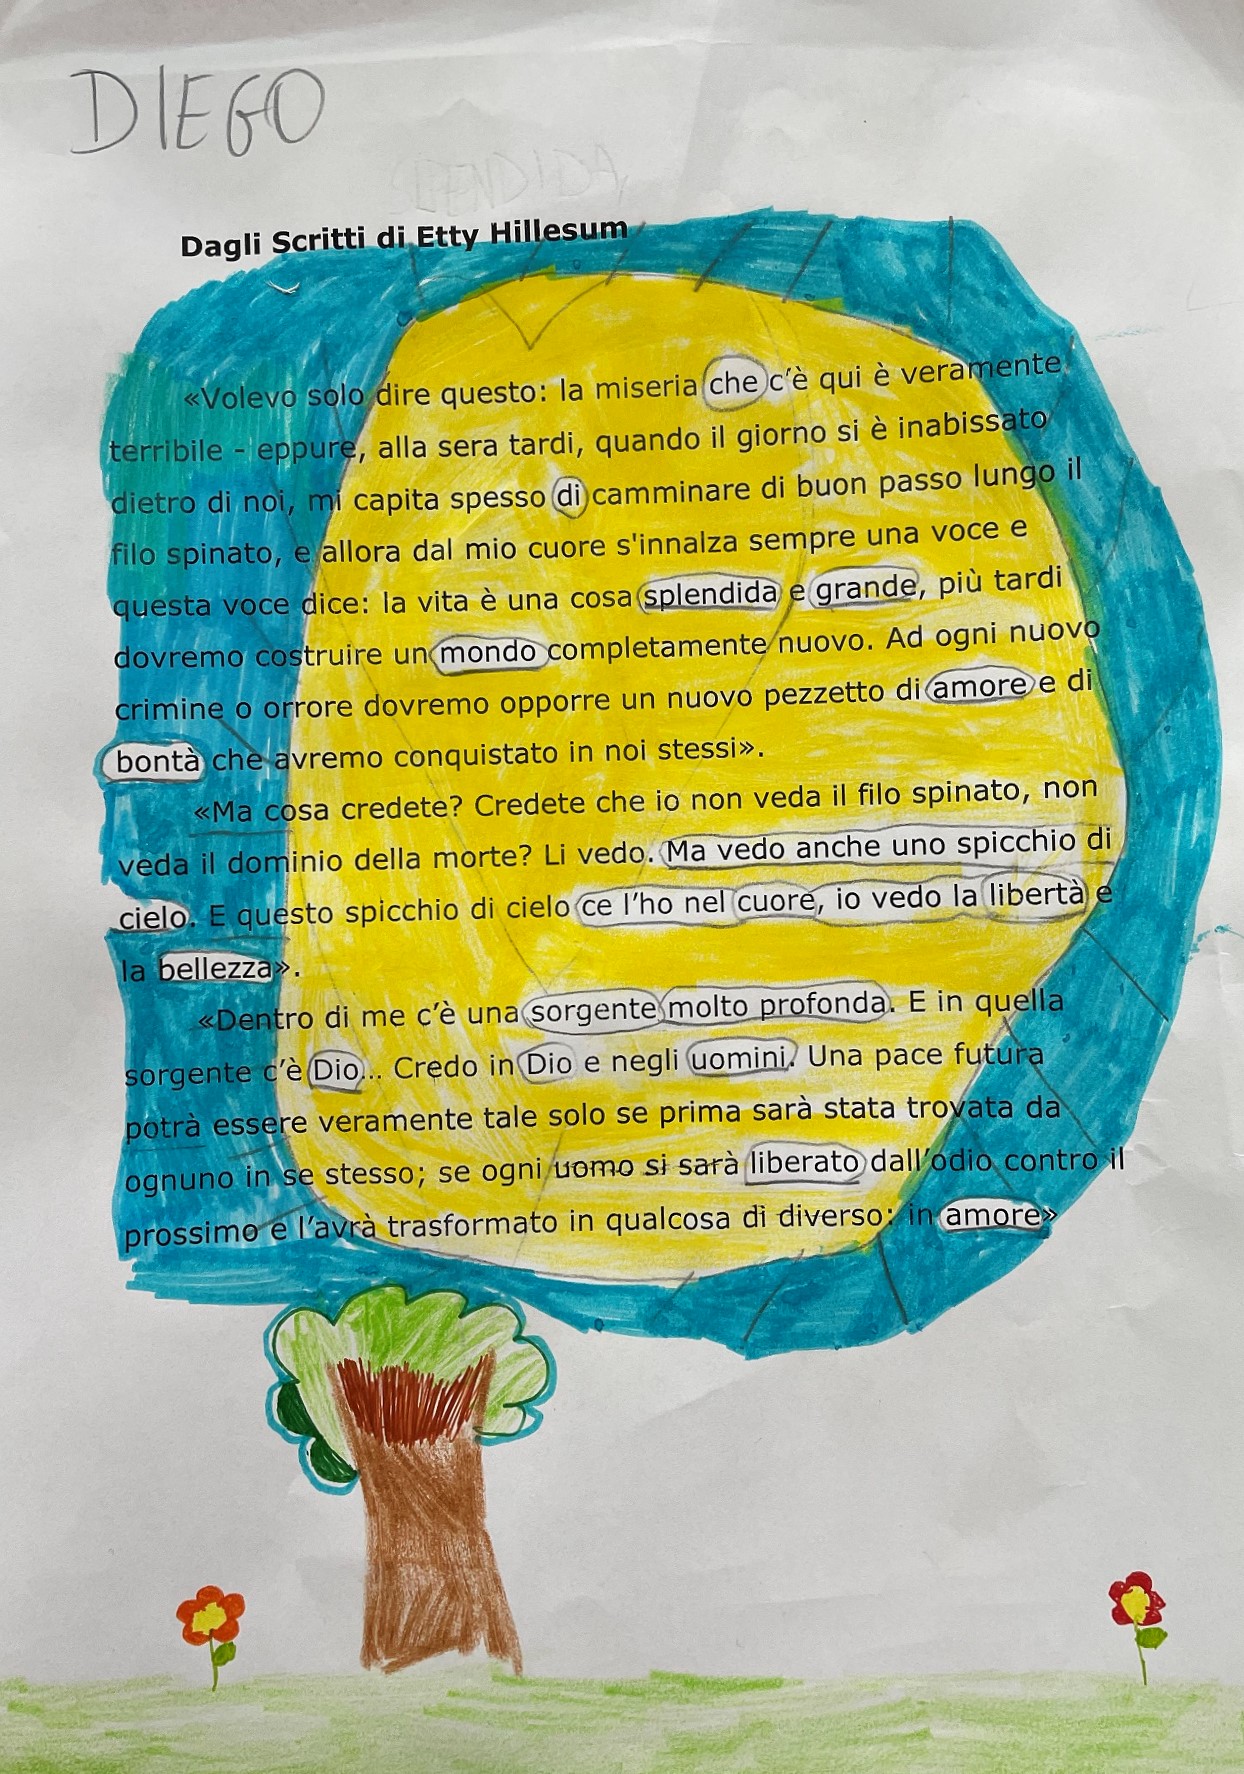 DIEGO
SPLENDIDA
Dagli Scritti di Etty Hillesum
«Volevo solo dire questo: la miseria che c'è qui è veramente
terribile - eppure, alla sera tardi, quando il giorno si è inabissato
dietro di noi, mi capita spesso di camminare di buon passo lungo il
filo spinato, e allora dal mio cuore s'innalza sempre una voce e
questa voce dice: la vita è una cosa splendida e grande, più tardi
dovremo costruire un mondo completamente nuovo. Ad ogni nuovo
crimine o orrore dovremo opporre un nuovo pezzetto di amore e di
bontà che avremo conquistato in noi stessi».
«Ma cosa credete? Credete che io non veda il filo spinato, non
veda il dominio della morte? Li vedo. Ma vedo anche uno spicchio di
cielo. E questo spicchio di cielo ce l'ho nel cuore, io vedo la libertà e
la bellezza».
«Dentro di me c'è una sorgente molto profonda. E in quella
sorgente c'è Dio... Credo in Dio e negli uomini. Una pace futura
potrà essere veramente tale solo se prima sarà stata trovata da
ognuno in se stesso; se ogni uomo si sarà liberato dall'odio contro il
prossimo e l'avrà trasformato in qualcosa di diverso: in amore»